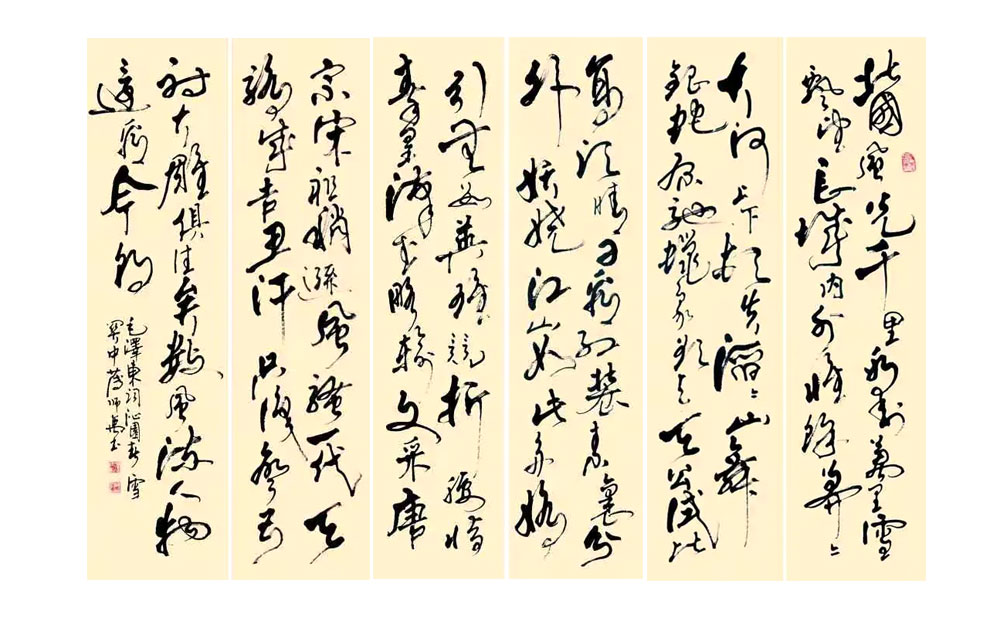 北國風光千里冰封萬里雪
飄望長城内外惟餘莽〻
大河上下頓失滔〻山舞
銀蛇原馳蠟象欲與天公試比
高須晴日看紅裝素裹分
外妖嬈江山如此多嬌
引無數英雄競折腰惜
秦皇漢武略輸文采唐
宗宋祖稍遜風騷一代天
驕成吉思汗只識彎弓
射大雕俱往矣數風流人物
還看今朝
毛澤東詞沁園春雪